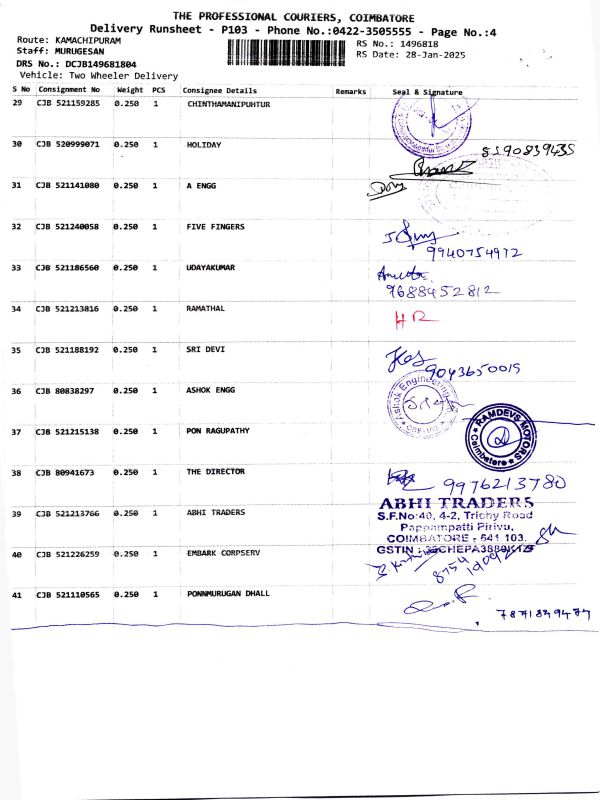 THE PROFESSIONAL COURIERS, COIMBATORE
Delivery Runsheet - P103 - Phone No.:0422-3505555 - Page No.:4
Route: KAMACHIPURAM
RS No.: 1496818
Staff: MURUGESAN
RS Date: 28-Jan-2025
DRS No.: DCJB149681804
Vehicle: Two Wheeler Delivery
S No Consignment No Weight PCS Consignee Details Remarks Seal & Signature
29 CJB 521159285 0.250 1 CHINTHAMANIPUHTUR
30 CJB 520999071 0.250 1 HOLIDAY
8190839435
31 CJB 521141080 0.250 1 A ENGG
32 CJB 521240058 0.250 1 FIVE FINGERS
9940754972
33 CJB 521186560 0.250 1 UDAYAKUMAR
9688452812
34 CJB 521213816 0.250 1 RAMATHAL
35 CJB 521188192 0.250 1 SRI DEVI
9043650019
36 CJB 80838297 0.250 1 ASHOK ENGG
Ashok Engineering
37 CJB 521215138 0.250 1 PON RAGUPATHY
RAMDEVS MOTORS
Coimbatore
38 CJB 80941673 0.250 1 THE DIRECTOR
9976213780
39 CJB 521213766 0.250 1 ABHI TRADERS
ABHI TRADERS
S.F.No:40, 4-2, Trichy Road
Pappampatti Pirivu,
COIMBATORE - 641 103.
40 CJB 521226259 0.250 1 EMBARK CORPSERV
GSTIN :
41 CJB 521110565 0.250 1 PONNMURUGAN DHALL